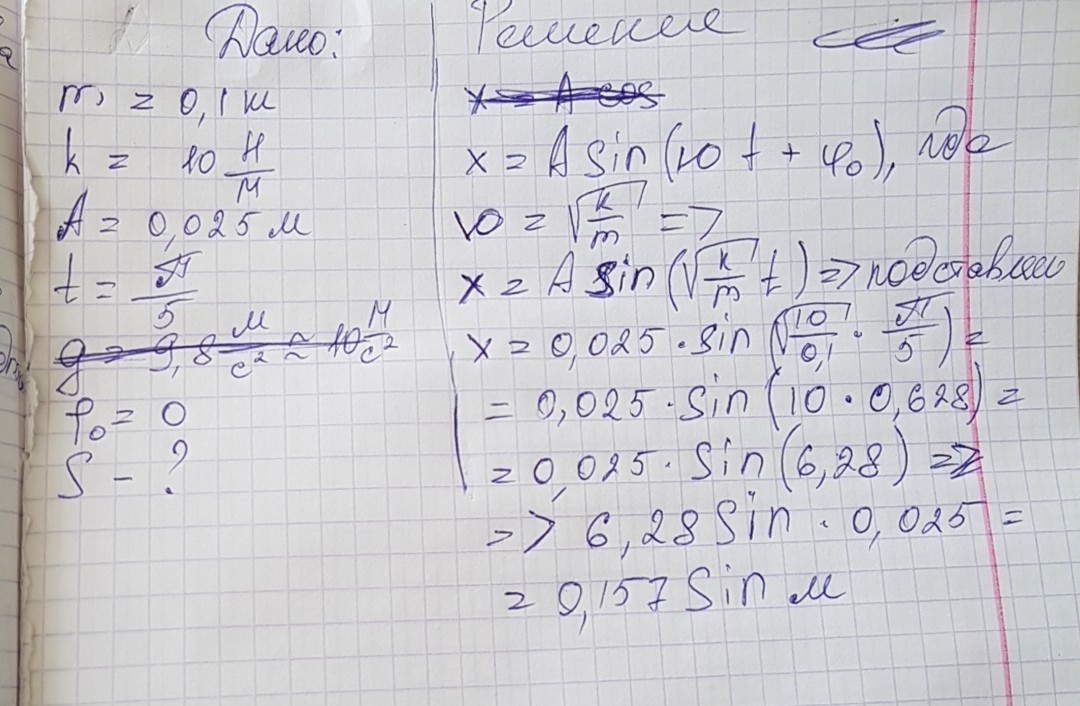 Дано:
m = 0,1 кг
k = 10 Н/м
A = 0,025 м
t = π/5
g = 9,8 м/с² ≈ 10 м/с²
φ₀ = 0
S - ?
Решение
x = A cos
x = A sin(10 t + φ₀), где
10 = √(k/m) =>
x = A sin(√(k/m) t) => подставляем
x = 0,025 · sin(√(10/0,1) · π/5) =
= 0,025 · sin(10 · 0,628) =
= 0,025 · sin(6,28) =>
=> 6,28 Sin · 0,025 =
= 0,157 Sin м